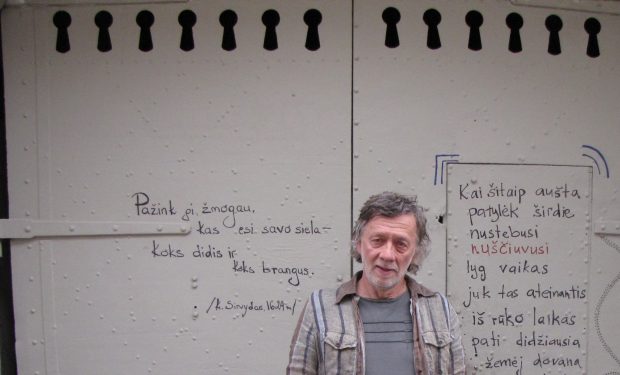 Pažink gi, žmogau,
kas esi savo siela–
koks didis ir
koks brangus.
/k. Sirvydas, 1629m/
Kai šitaip aušta
patylėk širdie
nustebusi
nuščiuvusi
lyg vaikas
juk tas ateinantis
iš rūko laikas
pati didžiausia
žemėj dovana